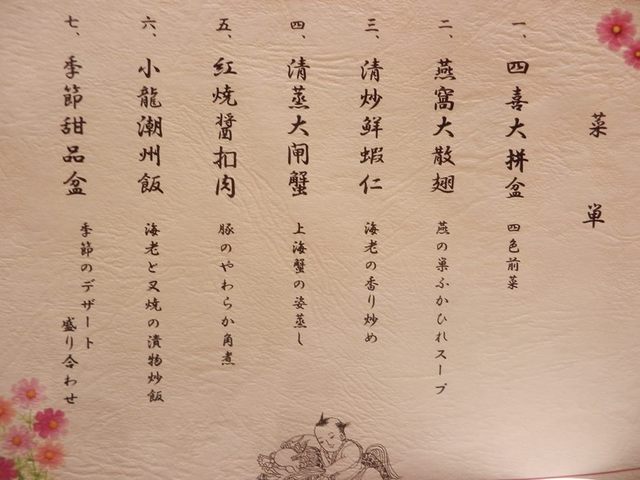 菜単
一、四喜大拼盆 四色前菜
二、燕窩大散翅 燕の巣ふかひれスープ
三、清炒鮮蝦仁 海老の香り炒め
四、清蒸大闸蟹 上海蟹の姿蒸し
五、紅焼醤扣肉 豚のやわらか角煮
六、小龍潮州飯 海老と叉焼の漬物炒飯
七、季節甜品盆 季節のデザート
盛り合わせ